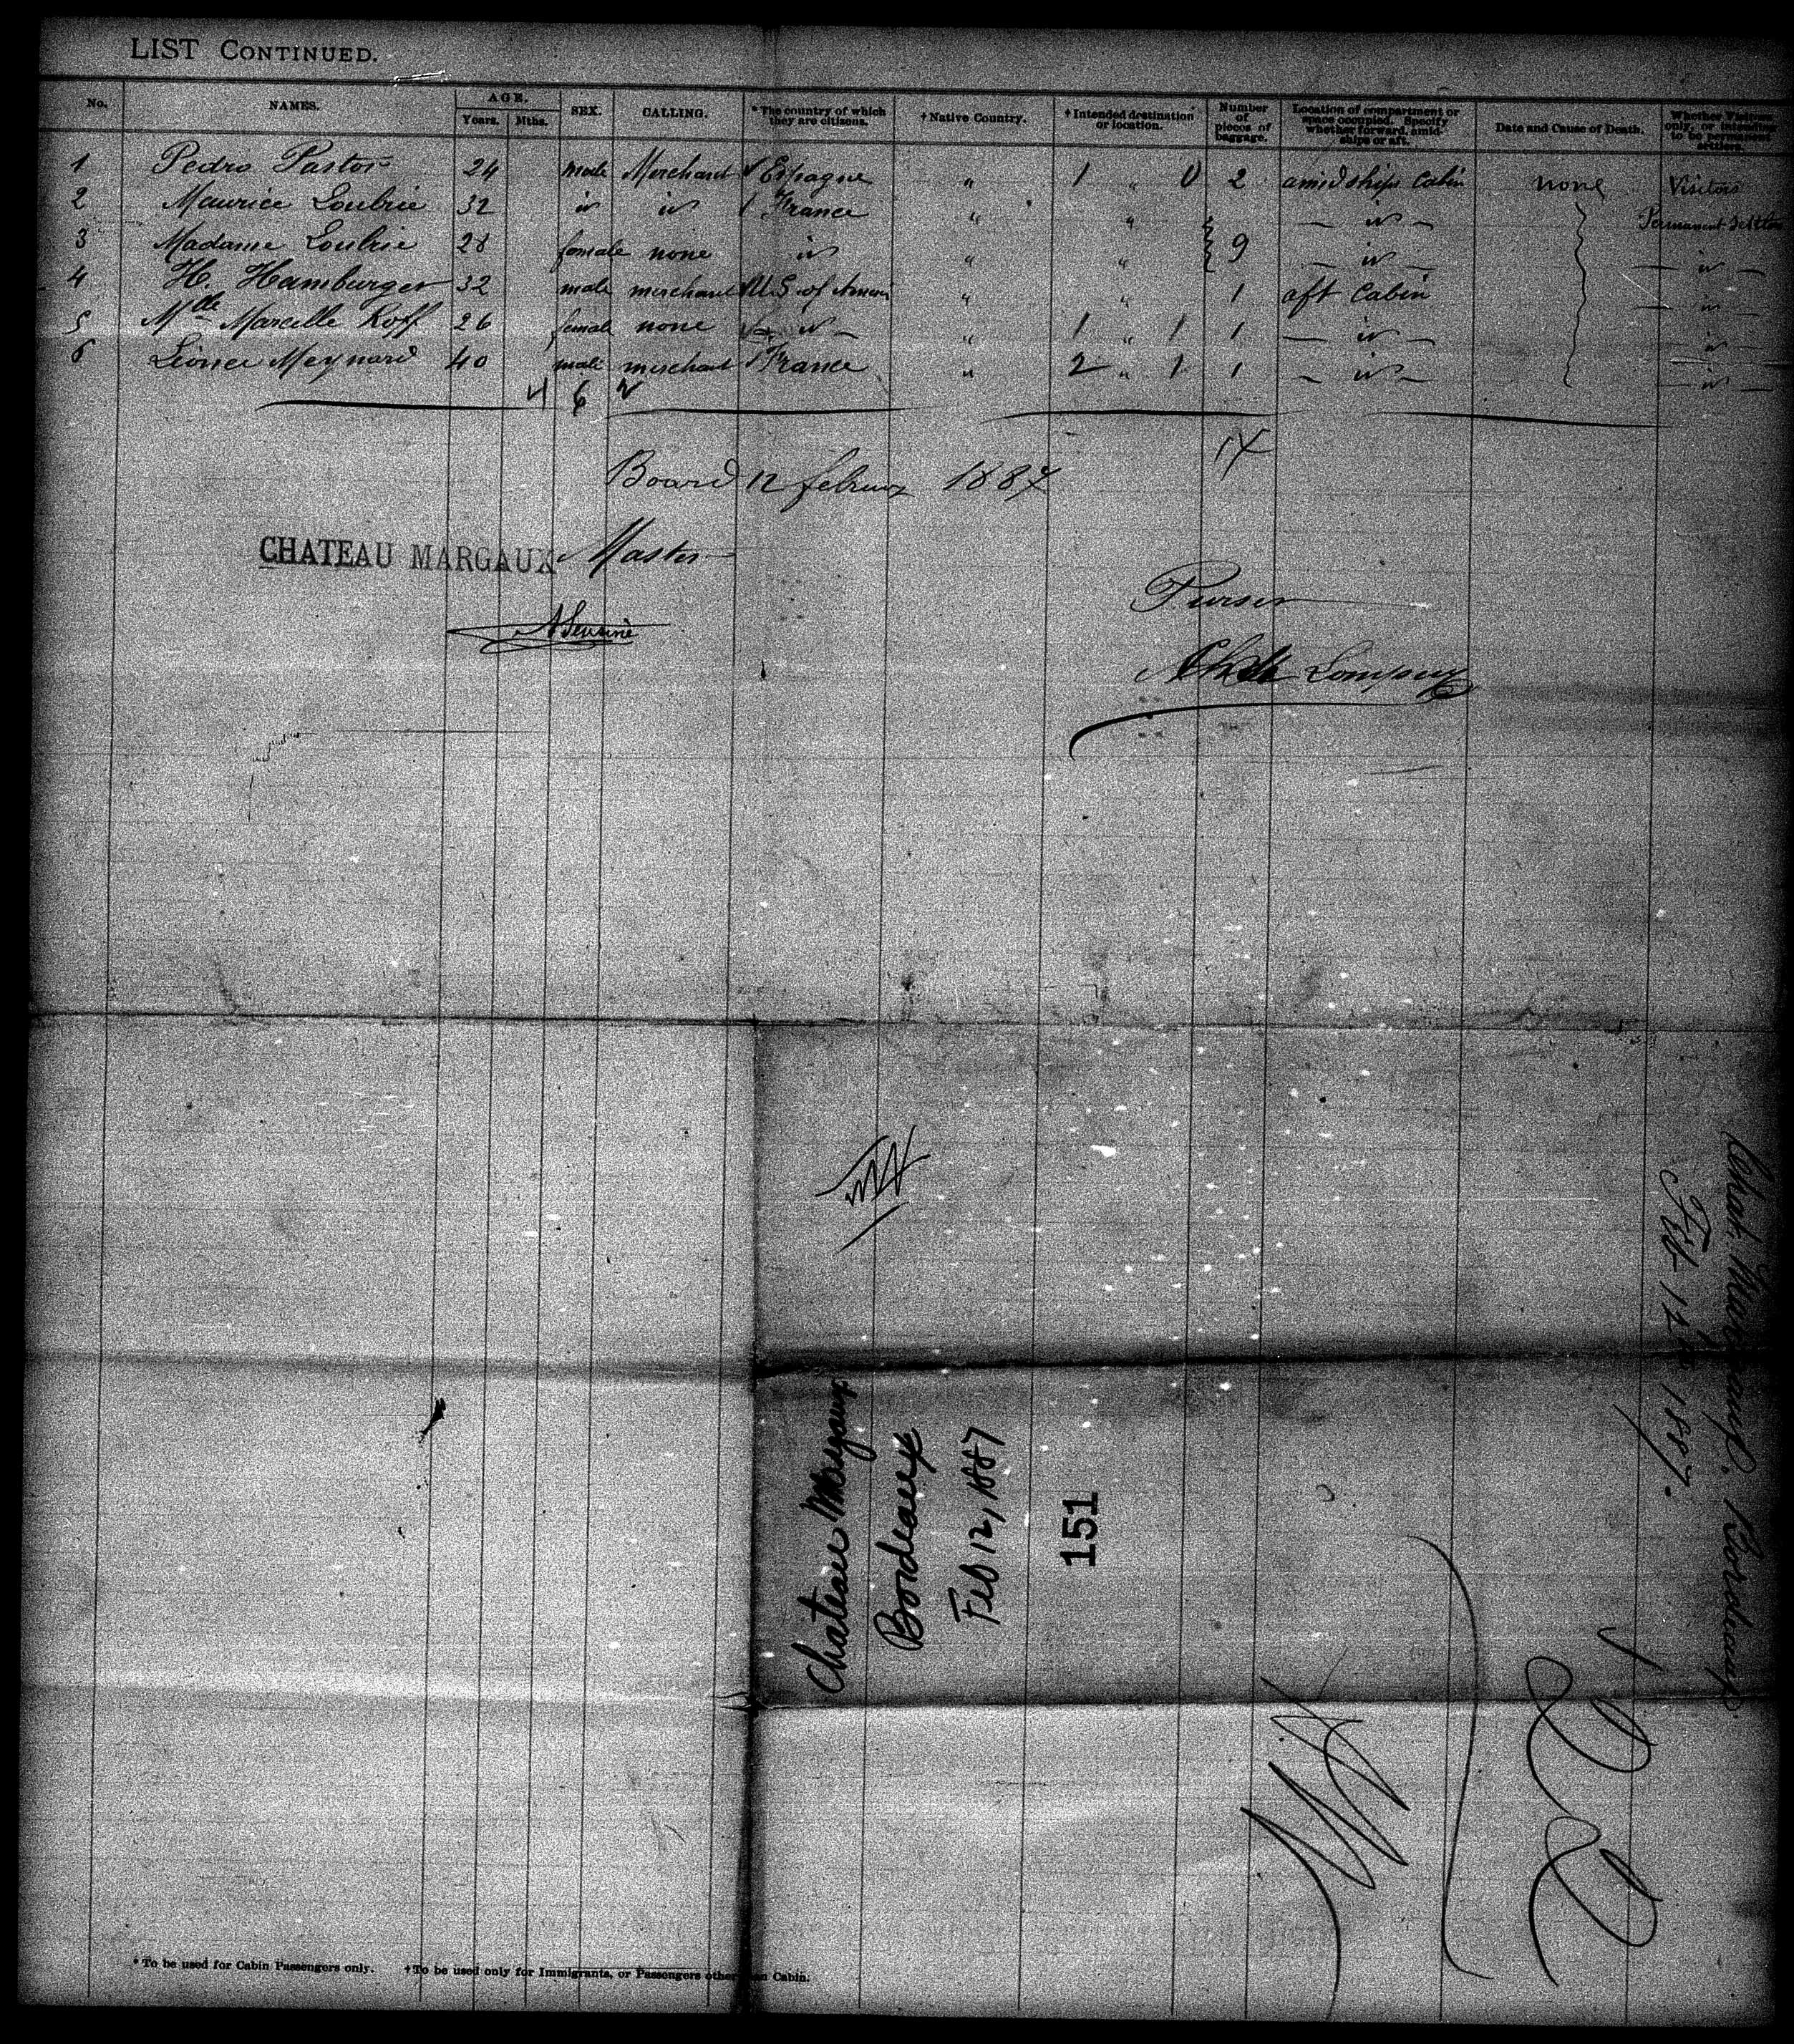 LIST CONTINUED.
No. NAMES. AGE. Years. Mths. SEX. CALLING. * The country of which they are citizens. † Native Country. † Intended destination or location. Number of pieces of baggage. Location of compartment or space occupied. Specify whether forward, amidships or aft. Date and Cause of Death. Whether Visitors only, or intending to be permanent settlers.
1 Pedro Pastor 24 male Merchant Espagne " 1 " 0 2 amidships Cabin none Visitors
2 Maurice Loubrie 32 id id France " " — id — Permanent Settlers
3 Madame Loubrie 28 female none id " " 9 — id — — id —
4 H. Hamburger 32 male merchant U.S of Americ " " 1 aft Cabin — id —
5 Mdle Marcelle Roff 26 female none — id — " 1 " 1 1 — id — — id —
6 Léonce Meynard 40 male merchant France " 2 " 1 1 — id — — id —
4 6 2
14
Board 12 february 1887
CHATEAU MARGAUX Master
Purser
A Sensine
Chateau Margaux
Bordeaux
Feb 12, 1887
151
Chat. Margaux. Bordeaux
Feb 12th 1887.
* To be used for Cabin Passengers only. † To be used only for Immigrants, or Passengers other than Cabin.